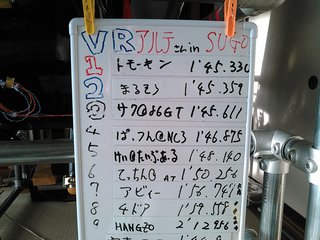 VRアルテさん in SUGO
1 トモーキン 1'45.330
2 まるそう 1'45.359
3 サク@86GT 1'45.611
4 ぱ,つん@NC3 1'46.875
5 1'48.140
6 てっちん@ AT 1'50.256
7 アビィー 1'56.741
8 4ドア 1'59.558
9 HANGZO 2'12.956